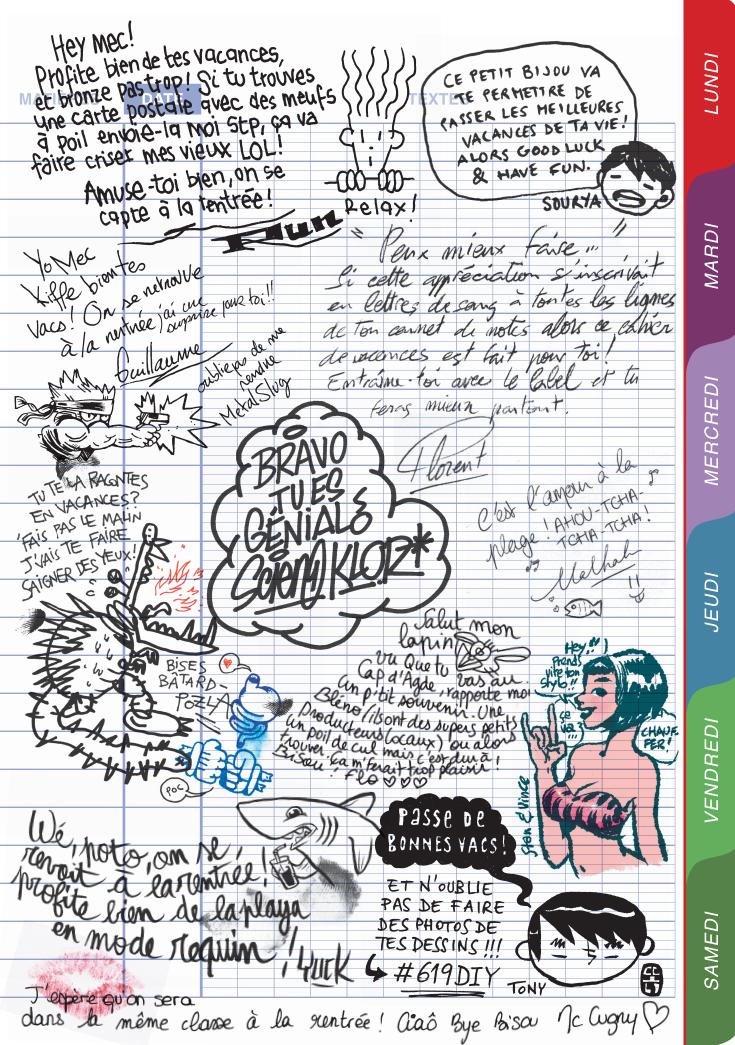 Hey Mec!
Profite bien de tes vacances,
et bronze pas trop! Si tu trouves
une carte postale avec des meufs
à poil envoie-la moi STP, ça va
faire criser mes vieux LOL!
Amuse-toi bien, on se
capte à la rentrée!
Run
DATE
TEXTE
Relax!
CE PETIT BIJOU VA
TE PERMETTRE DE
PASSER LES MEILLEURES
VACANCES DE TA VIE!
ALORS GOOD LUCK
& HAVE FUN.
SOURYA
LUNDI
MARDI
MERCREDI
JEUDI
VENDREDI
SAMEDI
Yo Mec
Kiffe bien tes
vacs! On se retrouve
à la rentrée j'ai une
surprise pour toi!!
Guillaume
oublie pas de me
rendre
Metal Slug
"Peux mieux faire..."
Si cette appréciation s'inscrivait
en lettres de sang à toutes les lignes
de ton carnet de notes alors ce cahier
de vacances est fait pour toi!
Entraîne-toi avec le label et tu
feras mieux partout.
Florent
BRAVO
TU ES
GÉNIAL &
KLORZ*
C'est l'amour à la
plage! AHOU-TCHA-
TCHA-TCHA!
TU TE LA RACONTES
EN VACANCES?
FAIS PAS LE MALIN
J'VAIS TE FAIRE
SAIGNER DES YEUX!
BISES
BÂTARD-
POZLA
POC
Salut mon
lapin
vu que tu vas au
Cap d'Agde, rapporte moi
un p'tit souvenir. Une
Bléno (ils ont des supers petits
producteurs locaux) ou alors
un poil de cul mais c'est dur à
trouver. ça m'ferait trop plaisir!
Bisou! Flo ♡♡♡
Hey,
Prends
vite ton
stylo!!
ça
va
CHAUF-
FER!
Stan & Vince
Wé, poto, on se
revoit à la rentrée!
profite bien de la playa
en mode requin!
Yuck
PASSE DE
BONNES VACS!
ET N'OUBLIE
PAS DE FAIRE
DES PHOTOS DE
TES DESSINS!!!
#619DIY
TONY
J'espère qu'on sera
dans la même classe à la rentrée! Ciaô Bye Bisou Mc Cugny ♡